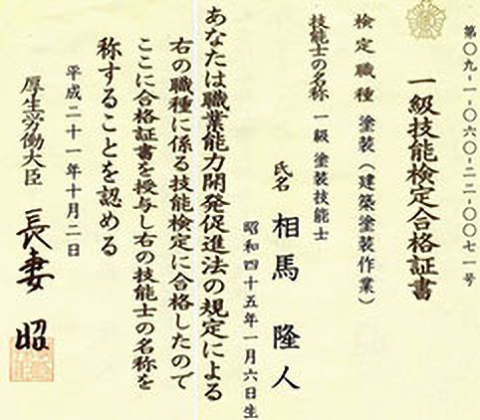 第〇九-一-〇六〇-二二-〇〇七一号
一級技能検定合格証書
検定職種 塗装（建築塗装作業）
技能士の名称 一級 塗装技能士
氏名 相馬 隆人
昭和四十五年一月六日生
あなたは職業能力開発促進法の規定による
右の職種に係る技能検定に合格したので
ここに合格証書を授与し右の技能士の名称を
称することを認める
平成二十一年十月二日
厚生労働大臣 長妻 昭